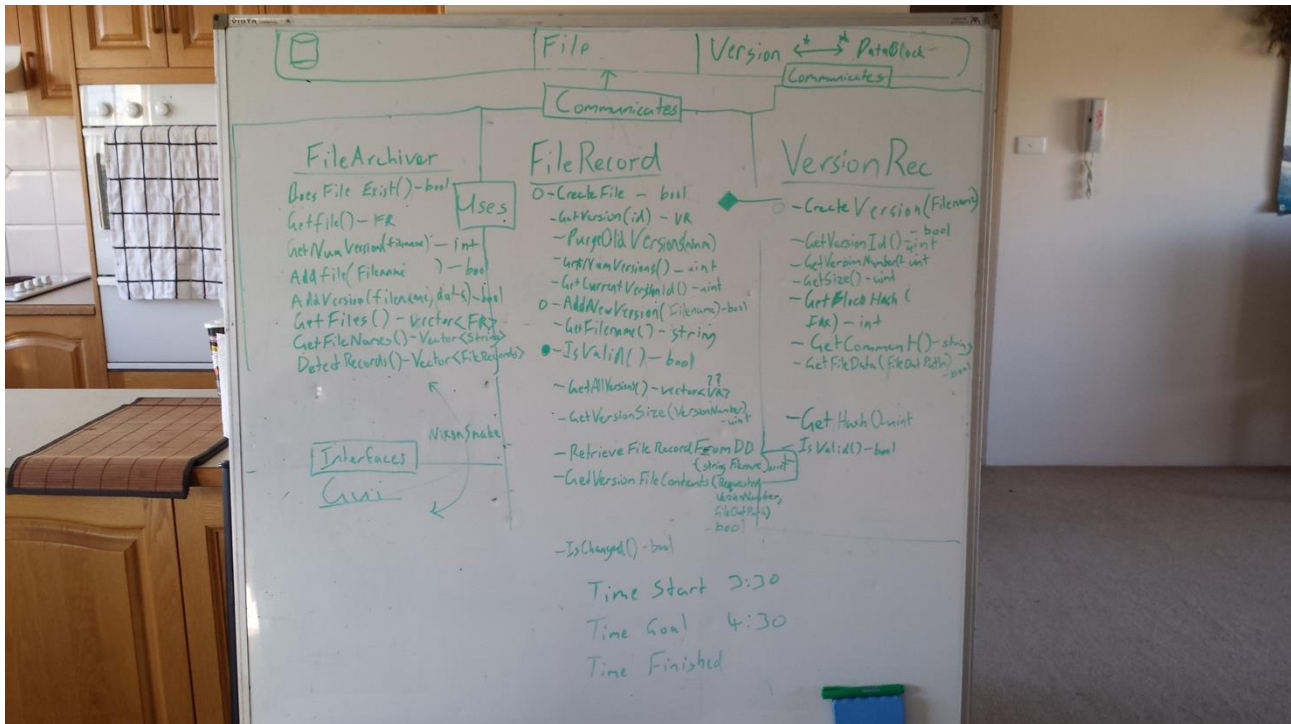 File
Version
DataBlock
Communicates
Communicates
FileArchiver
Does File Exist() - bool
Getfile() - FR
GetNumVersion(filename) - int
Addfile(Filename ) - bool
AddVersion(filename, data) - bool
GetFiles() - vector<FR>
GetFileNames() - Vector<String>
DetectRecords() - Vector<FileRecords>
Uses
Interfaces
Gui
FileRecord
O - CreateFile - bool
- GetVersion(id) - VR
- PurgeOldVersions(num)
- GetNumVersions() - uint
- GetCurrentVersionId() - uint
O - AddNewVersion(Filename) - bool
- GetFilename() - string
- IsValid() - bool
??
- GetAllVersions() - vector<VR>
- GetVersionSize(VersionNumber)
- uint
- RetrieveFileRecordFromDD
(string Filename) uint
- GetVersionFileContents(Requested
VersionNumber,
FileOutPath)
- bool
- IsChanged() - bool
VersionRec
- CreateVersion(Filename)
- bool
- GetVersionId() - uint
- GetVersionNumber() - uint
- GetSize() - uint
- GetBlockHash(
) - int
- GetComment() - string
- GetFileData(FileOutPath)
- bool
- GetHash() uint
- IsValid() - bool
Time Start 3:30
Time Goal 4:30
Time Finished